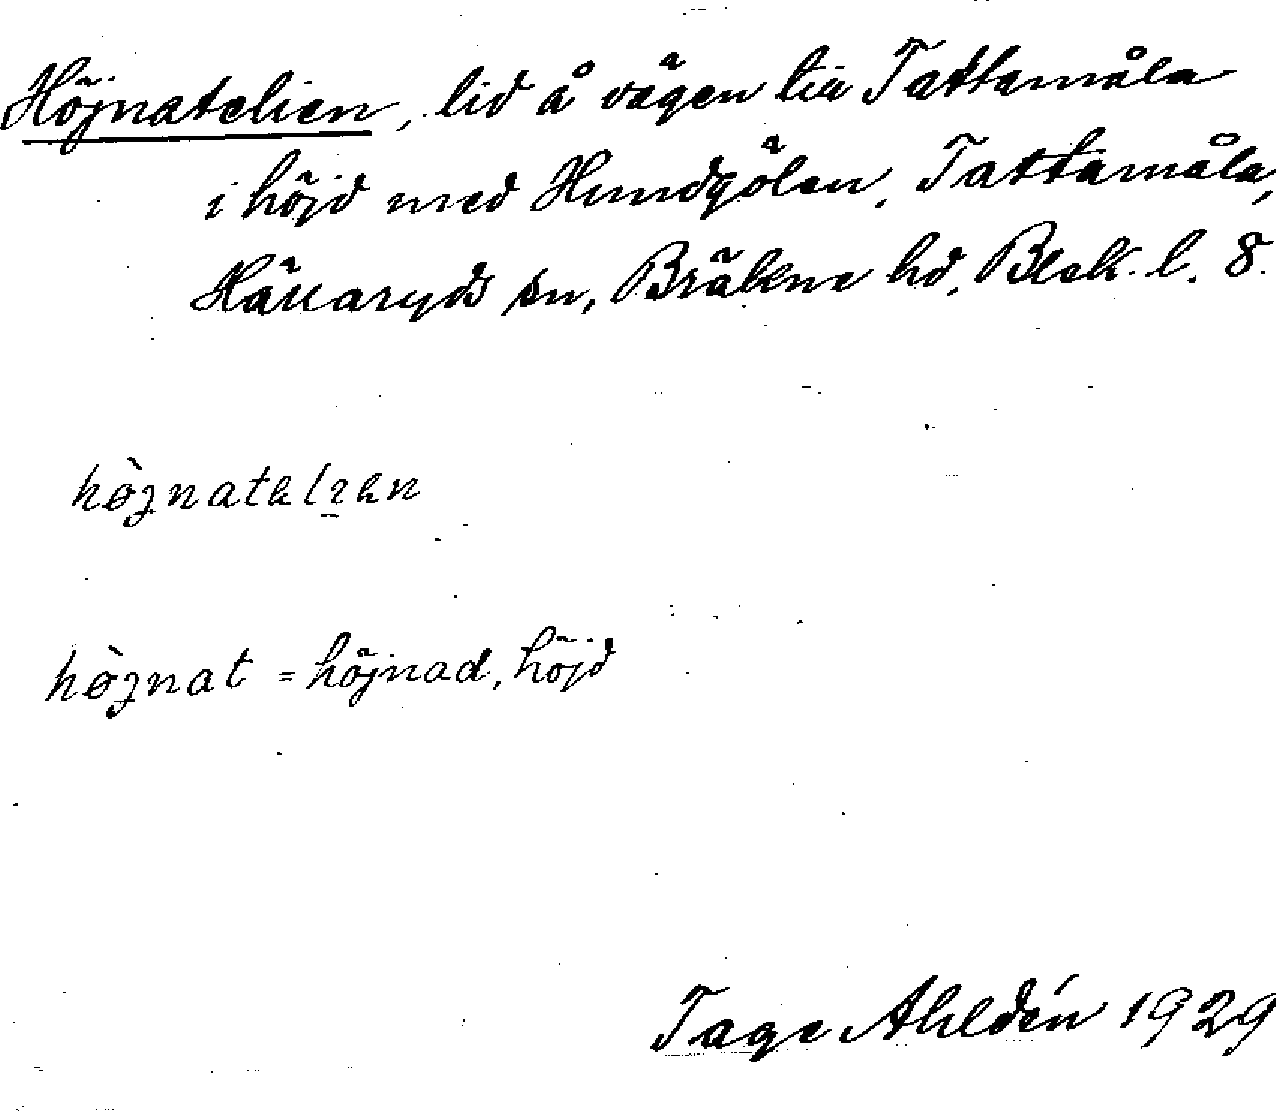 Höjnatelien, lid å vägen till Tattamåla
i höjd med Hundgölen, Tattamåla,
Hällaryds sn, Bräkne hd, Blek. l. 8.
hø̀jnatelıen
hø̀jnat = höjnad, höjd
Tage Ahldén 1929